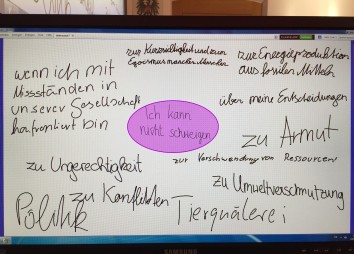 zur Kurzsichtigkeit und zum
Egoismus mancher Menschen
zur Energieproduktion
aus fossilen Mitteln
wenn ich mit
Missständen in
unserer Gesellschaft
konfrontiert bin
über meine Entscheidungen
Ich kann
nicht schweigen
zu Armut
zur Verschwendung von Ressourcen
zu Ungerechtigkeit
zu Umweltverschmutzung
zu Konflikten
Politik
Tierquälerei
SAMSUNG